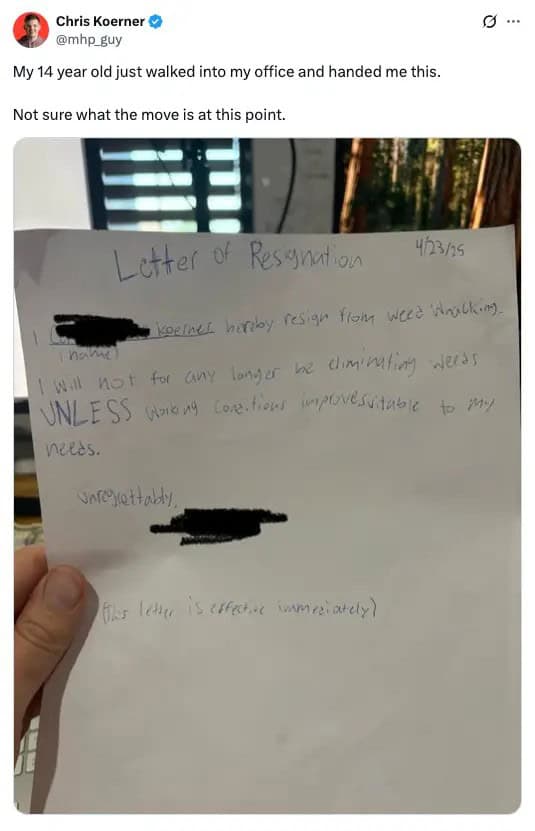 Chris Koerner
@mhp_guy
My 14 year old just walked into my office and handed me this.
Not sure what the move is at this point.
Letter of Resignation
4/23/25
I Koerner hereby resign from weed whacking.
(name)
I will not for any longer be eliminating weeds
UNLESS working conditions improve suitable to my
needs.
Unregrettably,
(this letter is effective immediately)